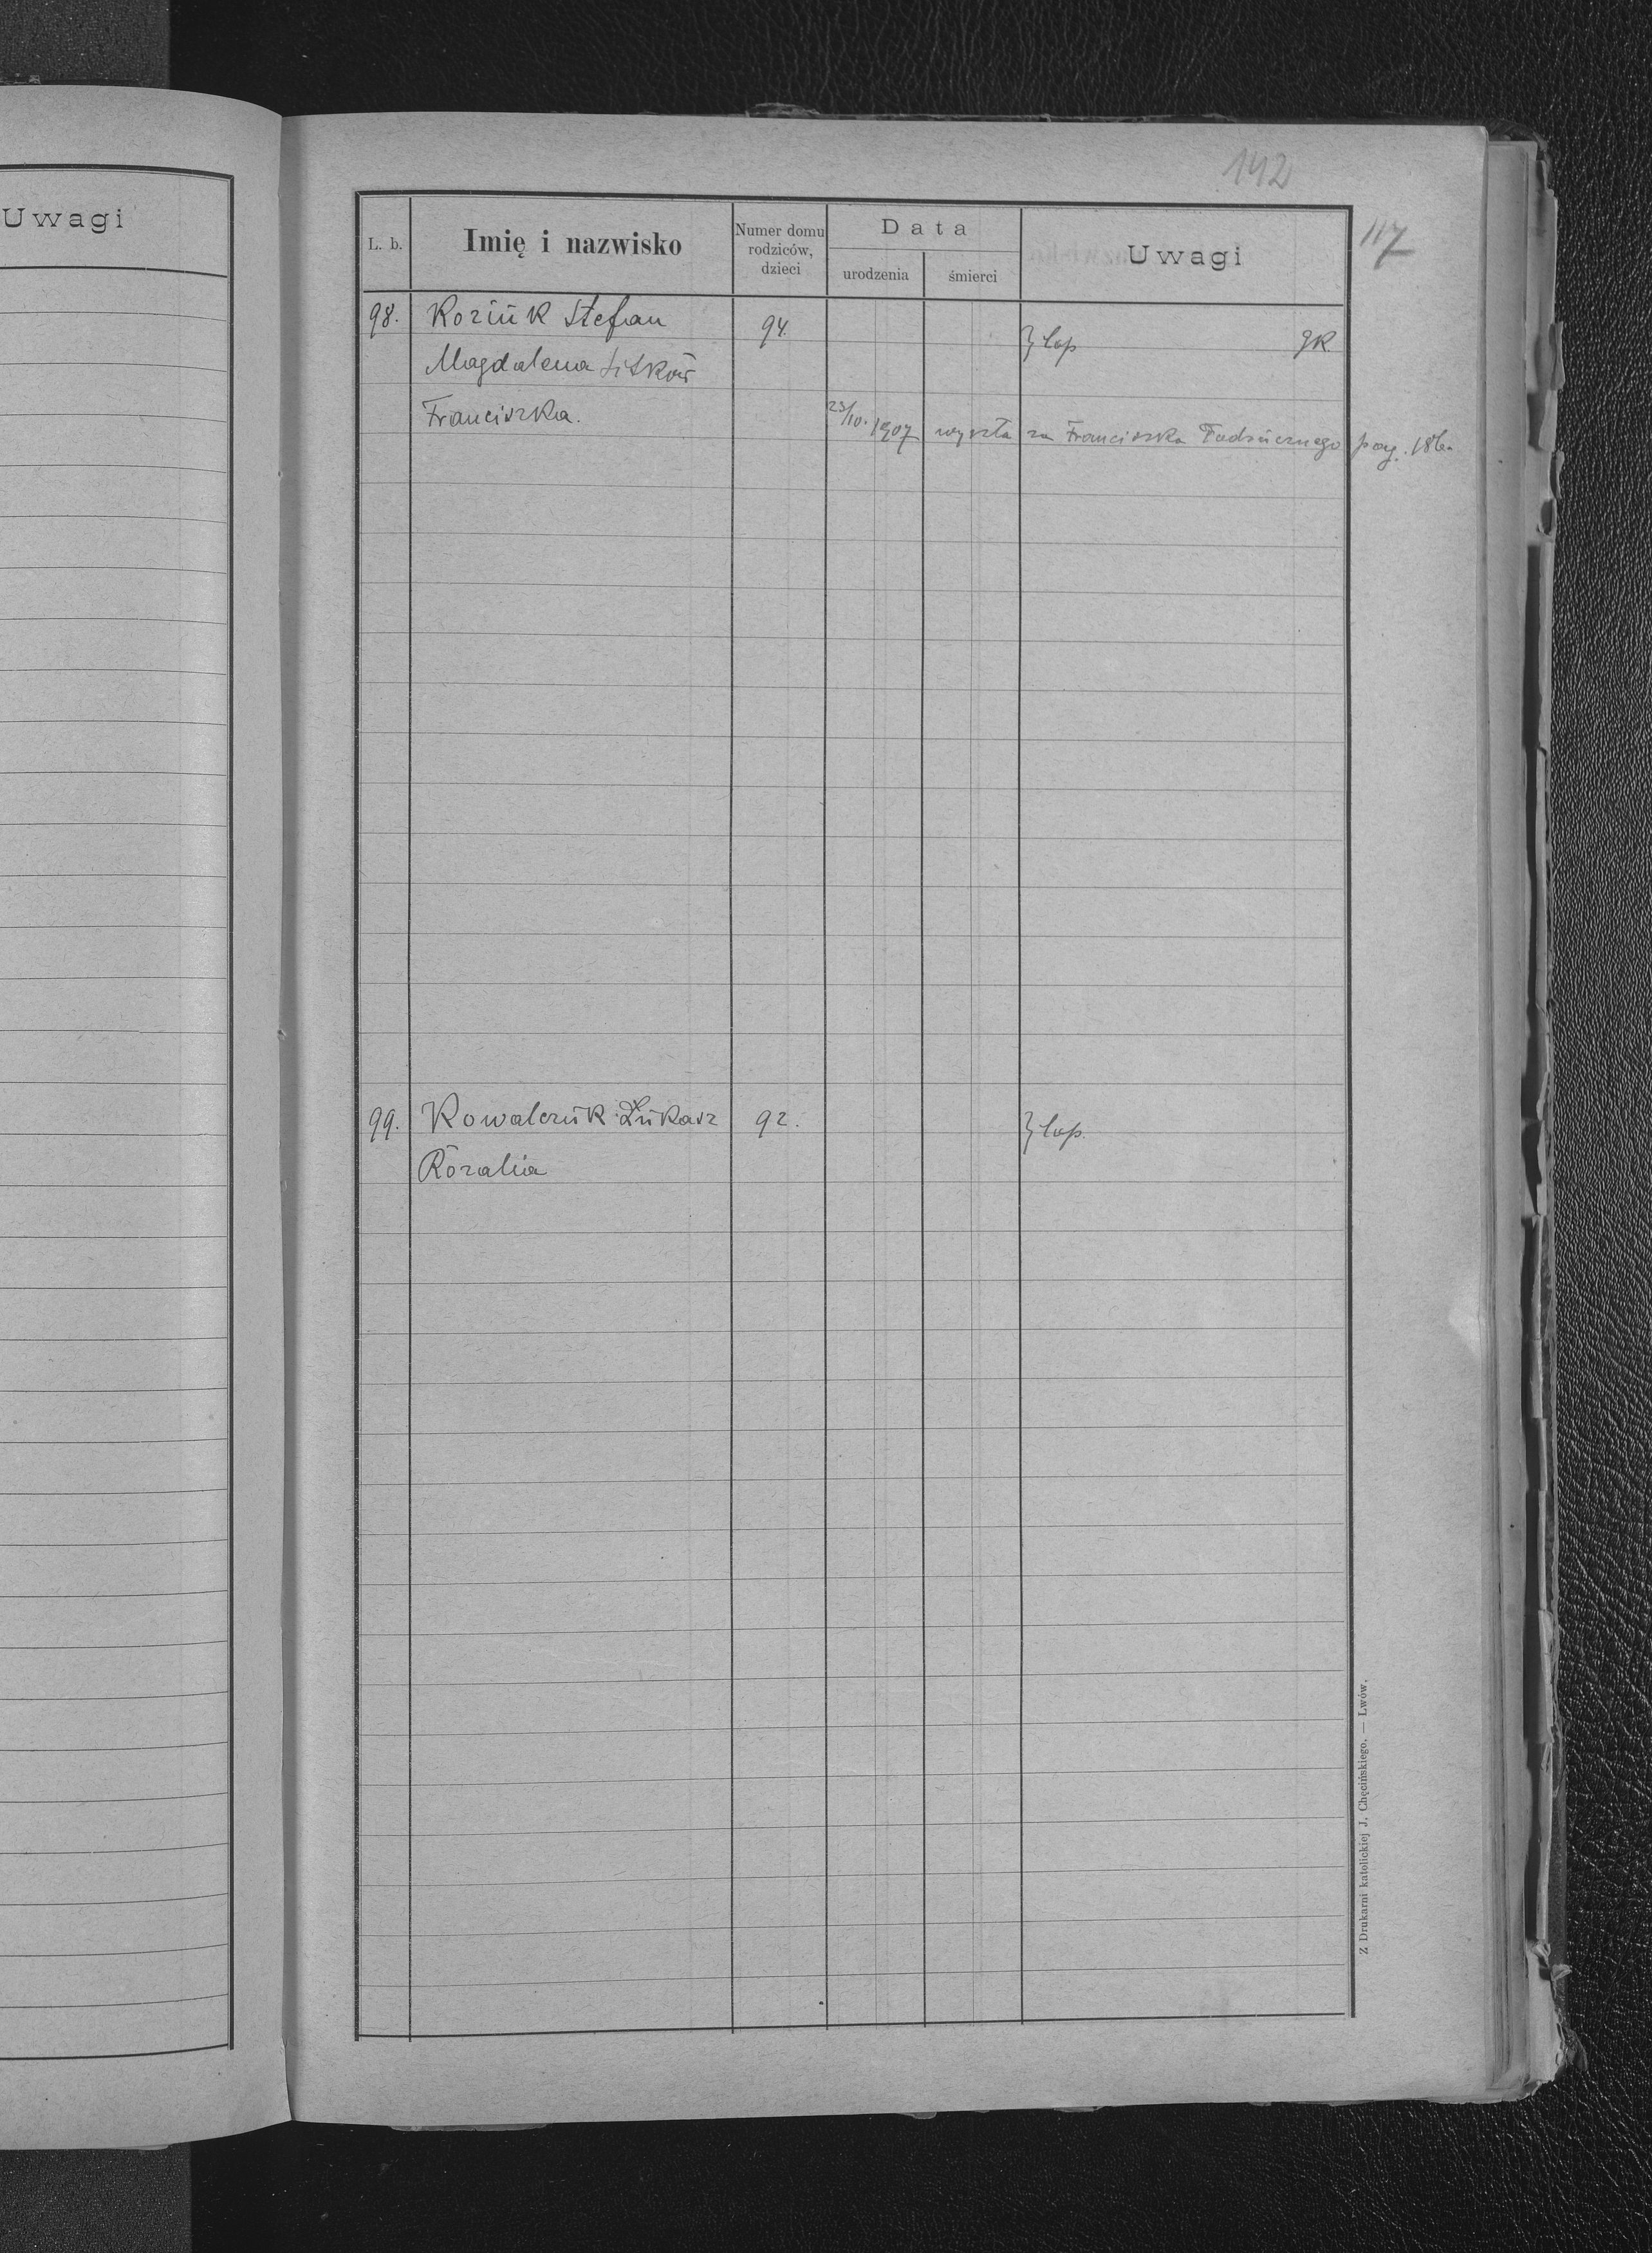 142
117
Uwagi
L. b.
Imię i nazwisko
Numer domu rodziców, dzieci
Data
urodzenia
śmierci
Uwagi
98. Koziuk Stefan 94. } łap gk.
Magdalena
Franciszka. 23/10. 1907 wyszła za Franciszka pag. 186.
99. Kowalczuk Łukasz 92. } łap.
Rozalia
Z Drukarni katolickiej J. Chęcińskiego. — Lwów.